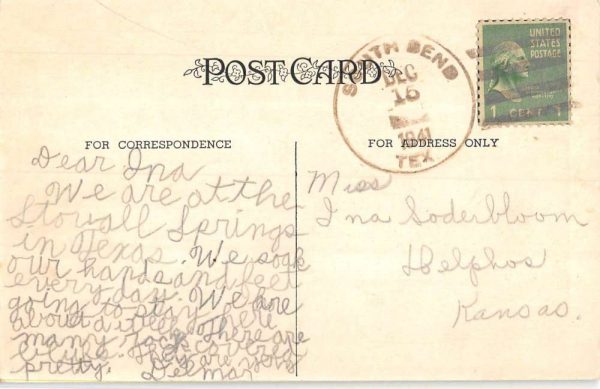 POST CARD
SOUTH BEND
DEC
16
1941
TEX
UNITED
STATES
POSTAGE
1 CENT 1
FOR CORRESPONDENCE
FOR ADDRESS ONLY
Dear Ina
We are at the
Stovall Springs
in Texas. We soak
our hands and feet
every day. We are
going to stay here
about a week. There are
many rocks
blue. They are
pretty. Delmar
Miss
Ina Soderbloom
Delphos
Kansas.